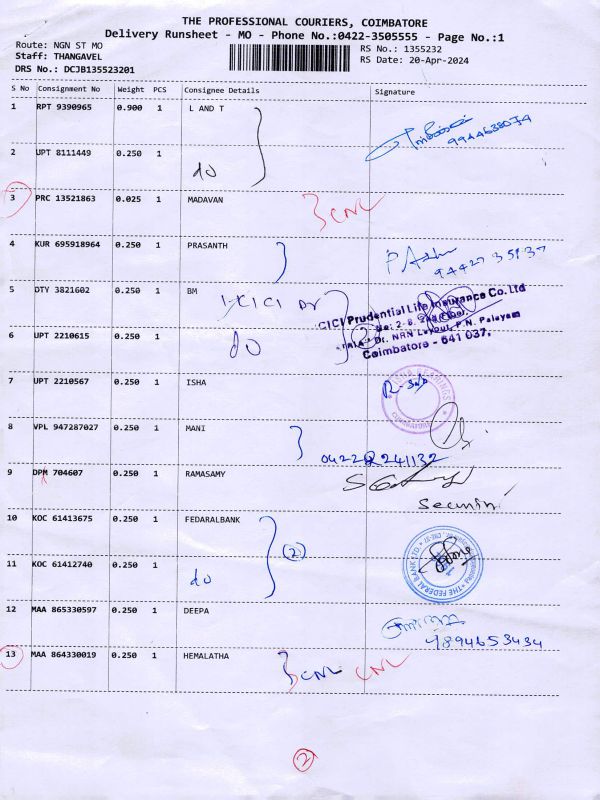 THE PROFESSIONAL COURIERS, COIMBATORE
Delivery Runsheet - MO - Phone No.:0422-3505555 - Page No.:1
Route: NGN ST MO
RS No.: 1355232
Staff: THANGAVEL
RS Date: 20-Apr-2024
DRS No.: DCJB135523201
S No Consignment No Weight PCS Consignee Details Signature
1 RPT 9390965 0.900 1 L AND T
9944638079
2 UPT 8111449 0.250 1
do
3 PRC 13521863 0.025 1 MADAVAN CNL
4 KUR 695918964 0.250 1 PRASANTH
94427 35137
5 DTY 3821602 0.250 1 BM
ICICI Pr
ICICI Prudential Life Insurance Co. Ltd
No: 2-B, 2nd Floor,
Dr. NRN Layout, P.N. Palayam
Coimbatore - 641 037.
6 UPT 2210615 0.250 1
do 2
7 UPT 2210567 0.250 1 ISHA
COIMBATORE
8 VPL 947287027 0.250 1 MANI
04222241132
9 DPM 704607 0.250 1 RAMASAMY
10 KOC 61413675 0.250 1 FEDARALBANK
2
THE FEDERAL BANK LTD.
11 KOC 61412740 0.250 1
do
12 MAA 865330597 0.250 1 DEEPA
9894653434
13 MAA 864330019 0.250 1 HEMALATHA CNL CNL
2